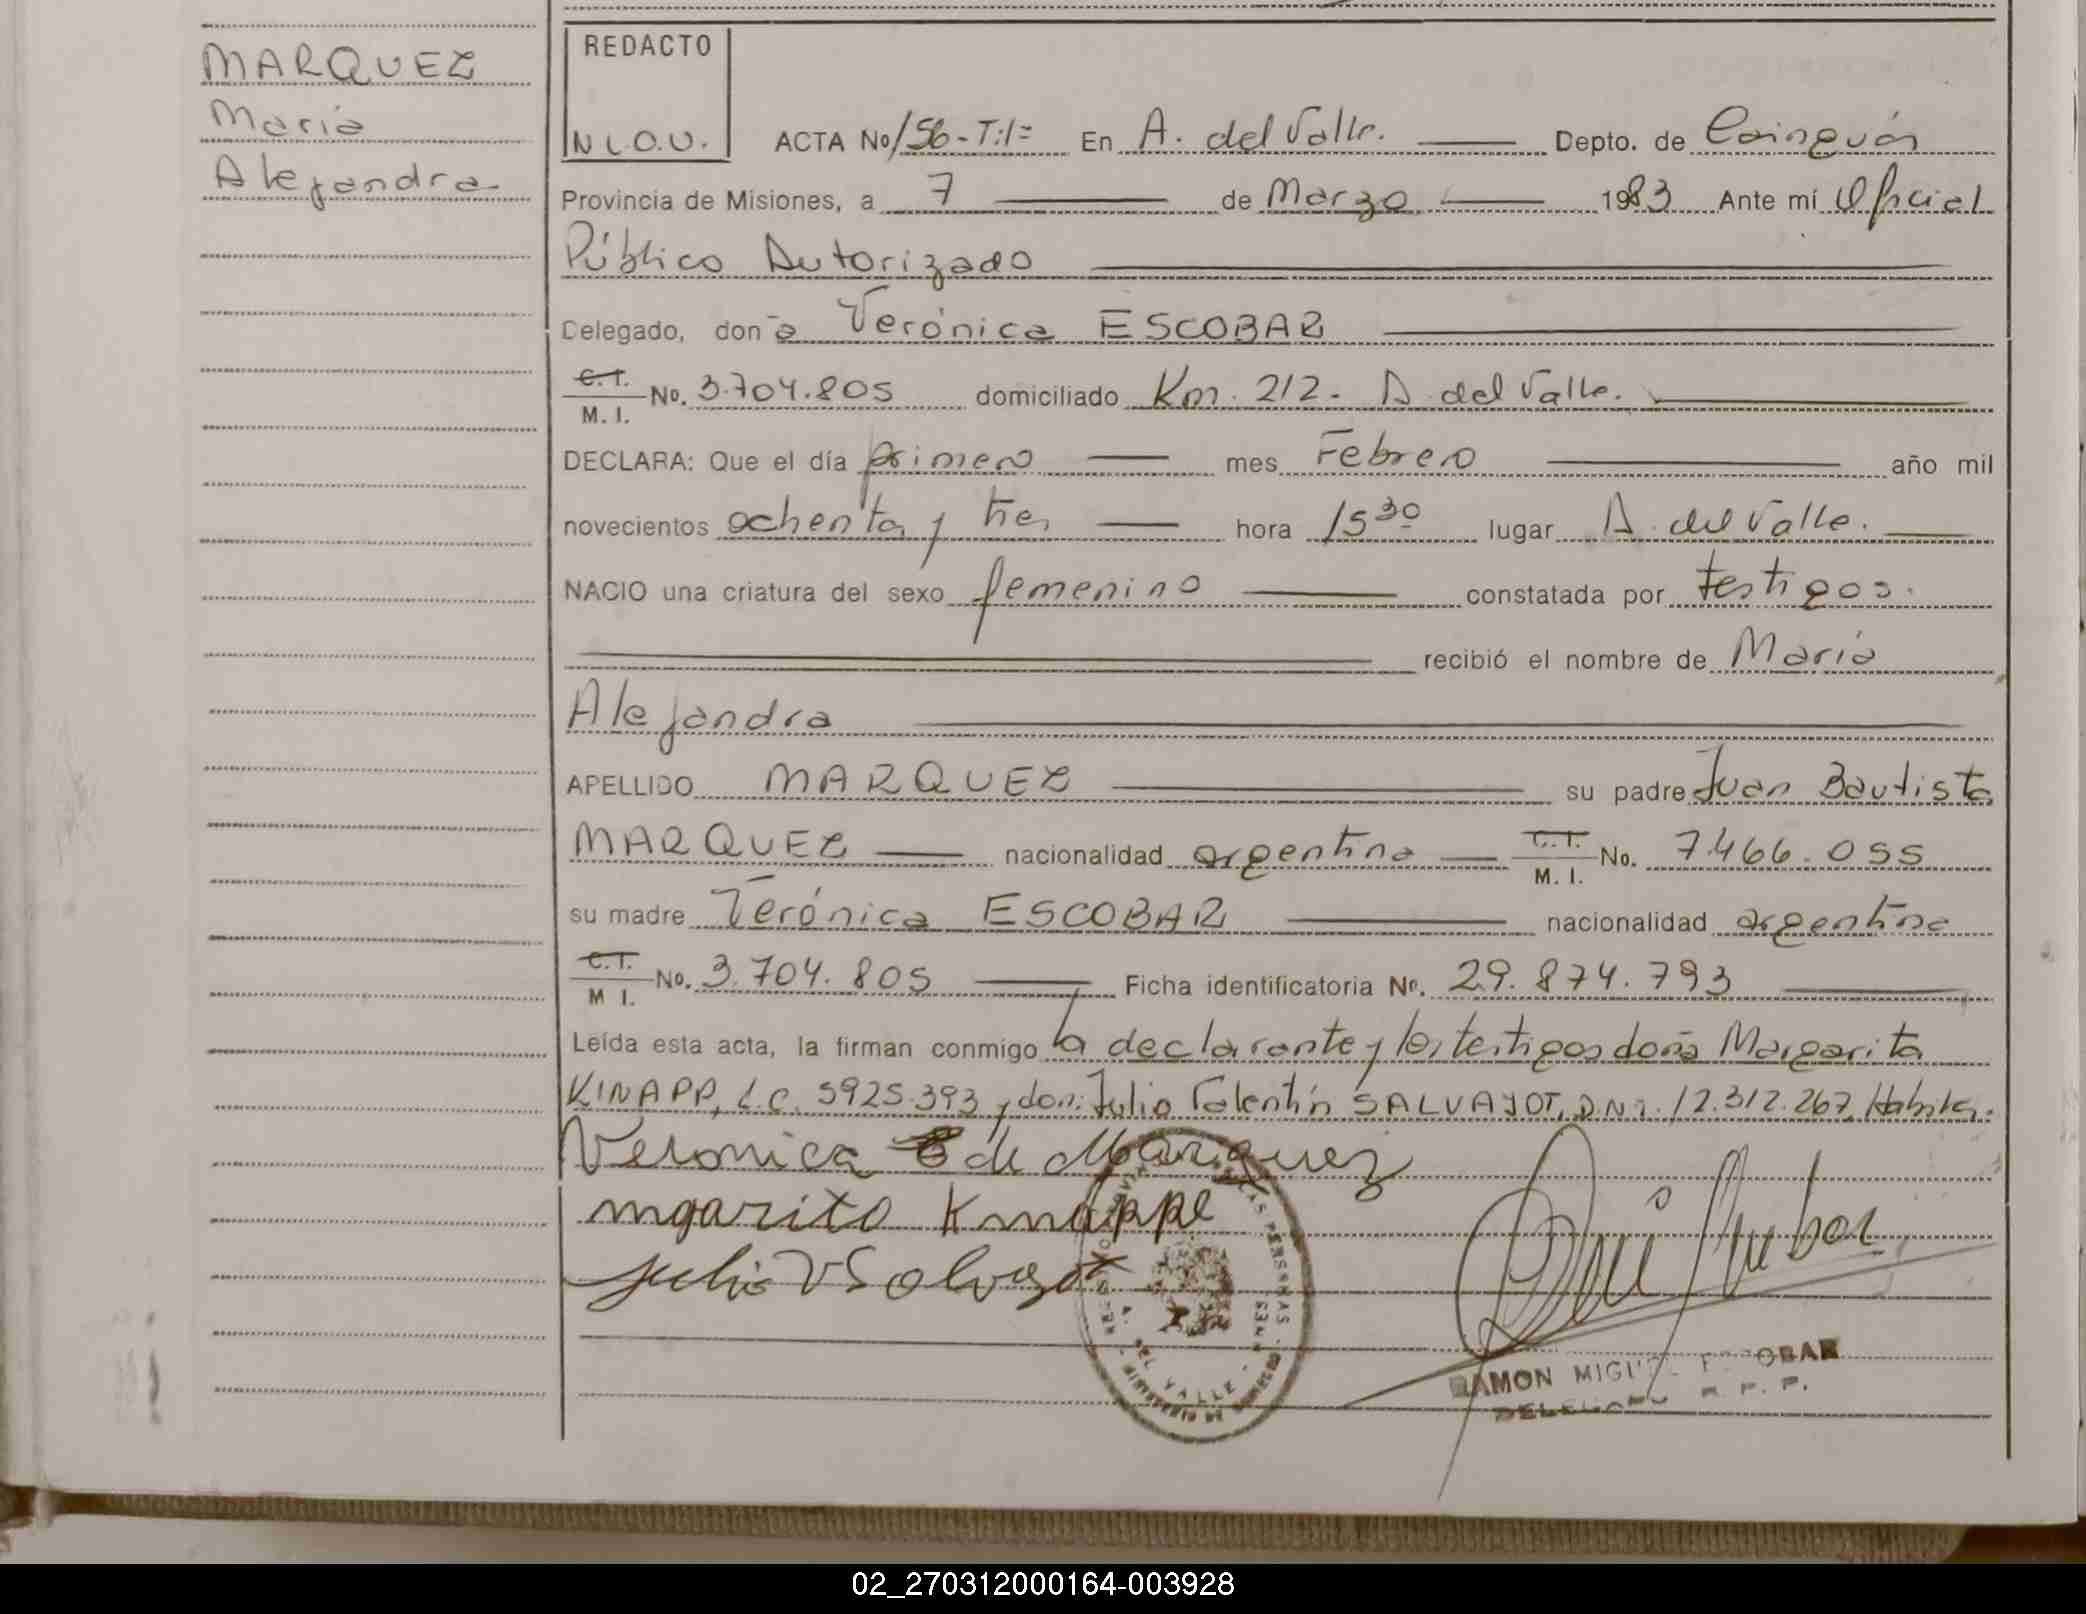 MARQUEZ
María
Alejandra
REDACTO
N L.O.U.
ACTA No 156-T:1= En A. del Valle. Depto. de Cainguás
Provincia de Misiones, a 7 de Marzo 1983 Ante mí Oficial
Público Autorizado
Delegado, don a Verónica ESCOBAR
C.I. M. I. No. 3.704.805 domiciliado Km. 212. A. del Valle.
DECLARA: Que el día primero mes Febrero año mil
novecientos ochenta y tres hora 15 30 lugar A. del Valle.
NACIO una criatura del sexo femenino constatada por testigos.
recibió el nombre de María
Alejandra
APELLIDO MARQUEZ su padre Juan Bautista
MARQUEZ nacionalidad argentina C.I. M. I. No. 7.466.055
su madre Verónica ESCOBAR nacionalidad argentina
C.I. M I. No. 3.704.805 Ficha identificatoria No. 29.874.793
Leída esta acta, la firman conmigo la declarante y los testigos doña Margarita
KINAPP, L.C. 5925.393 y don: Julio Valentín SALVAJOT, D.N.I. 12.312.267. Habiles.
Veronica E de Marquez
mgarito Knappe
Julio V Salvajot
A. DEL VALLE
RAMON MIGUEL ESCOBAR
DELEGADO R. P. P.
02_270312000164-003928